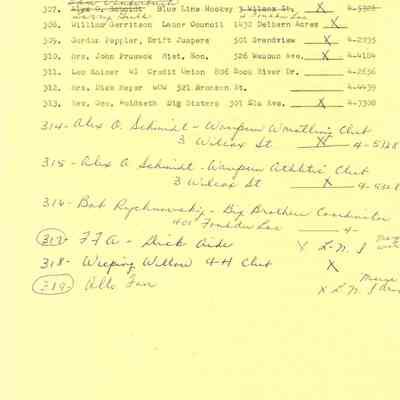 307. Alex O. Schmidt Blue Line Hockey 3 Wilcox St. X 4-5328
308. Willian Gerritson Labor Council 1432 Delbern Acres X
309. Gordon Peppler, Drift Jumpers 501 Grandview X 4-2095
310. Mrs. John Prumsok Hist. Hon. 526 Waupun Ave. X 4-4184
311. Leo Kaiser #1 Credit Union 806 Rock River Dr. 4-2656
312. Mrs. Dick Meyer WOW 521 Bronson St. 4-4439
313. Rev. Geo. Holdseth Big Sisters 301 Elm Ave. X 4-3308
314- Alex O. Schmidt - Waupun Wrestling Club
3 Wilcox St X 4-5328
315- Alex O. Schmidt - Waupun Athletic Club
3 Wilcox St X 4-5328
316- Bob Rychnowski - Big Brother Coordinator
401 Fond du Lac 4-
317- FFA - Dick Aide X L.M.
318- Weeping Willow 4H Club X
319- Alto Fair X L.M.